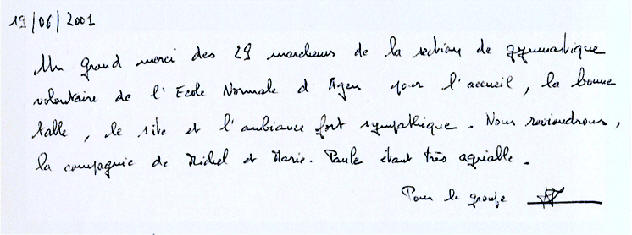 19/06/2001
Un grand merci des 29 marcheurs de la section de gymnastique
volontaire de l'Ecole Normale d'Agen pour l'accueil, la bonne
table, le site et l'ambiance fort sympathique. Nous reviendrons,
la compagnie de Michel et Marie-Paule étant très agréable.
Pour le groupe